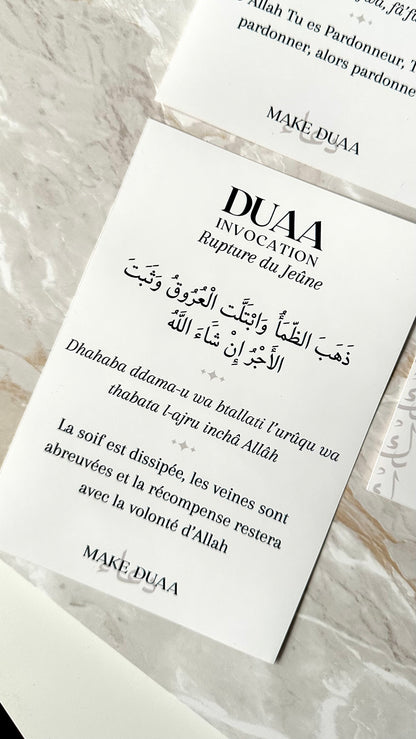 Allah Tu es Pardonneur,
pardonner, alors pardonne
MAKE DUAA
دعاء
DUAA
INVOCATION
Rupture du Jeûne
ذَهَبَ الظَّمَأُ وَابْتَلَّت الْعُرُوقُ وَثَبَتَ
الأَجْرُ إِنْ شَاءَ اللَّهُ
Dhahaba ddama-u wa btallati l'urûqu wa
thabata l-ajru inchâ Allâh
La soif est dissipée, les veines sont
abreuvées et la récompense restera
avec la volonté d'Allah
MAKE DUAA
دعاء